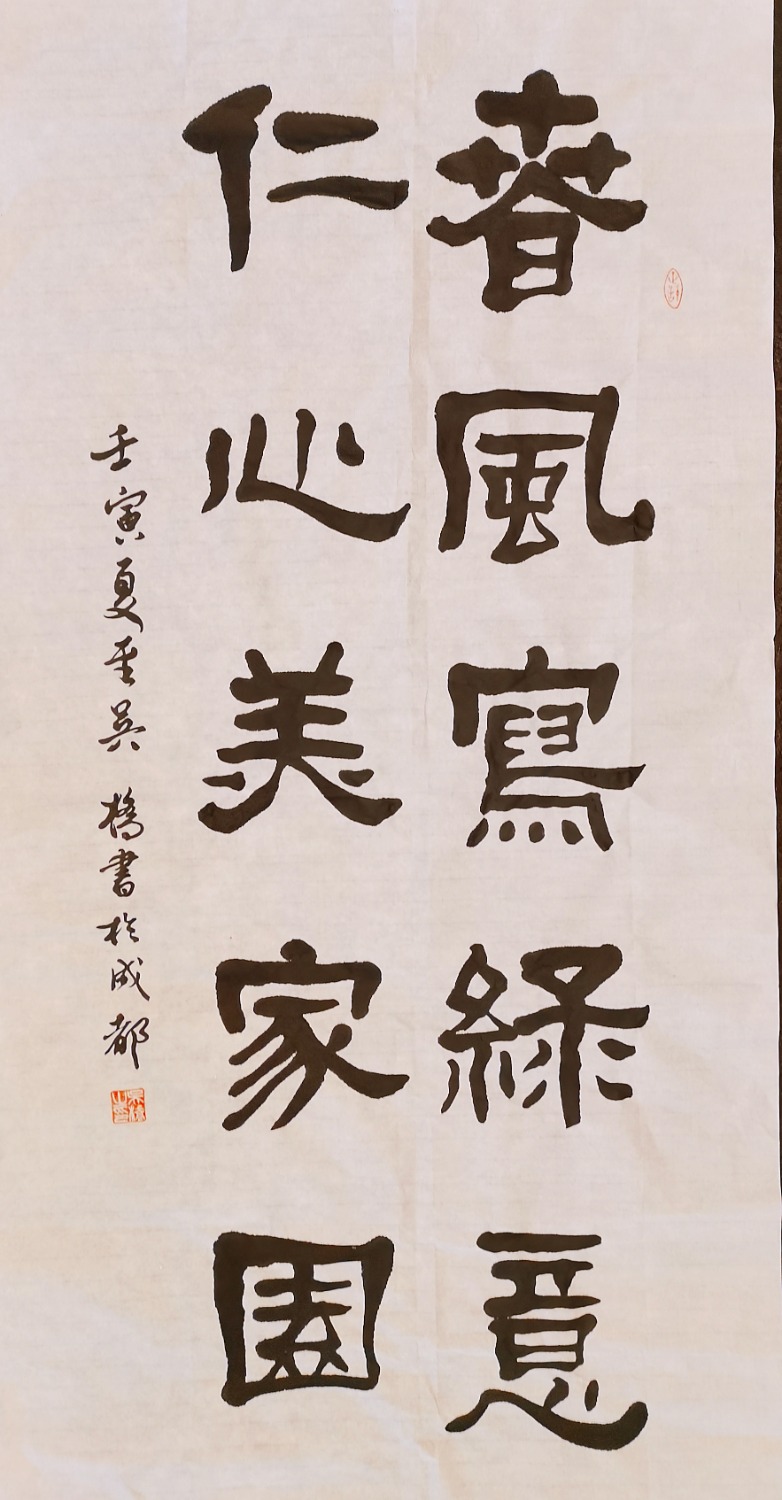 春風寫綠意
仁心美家園
壬寅夏至吳橋書於成都